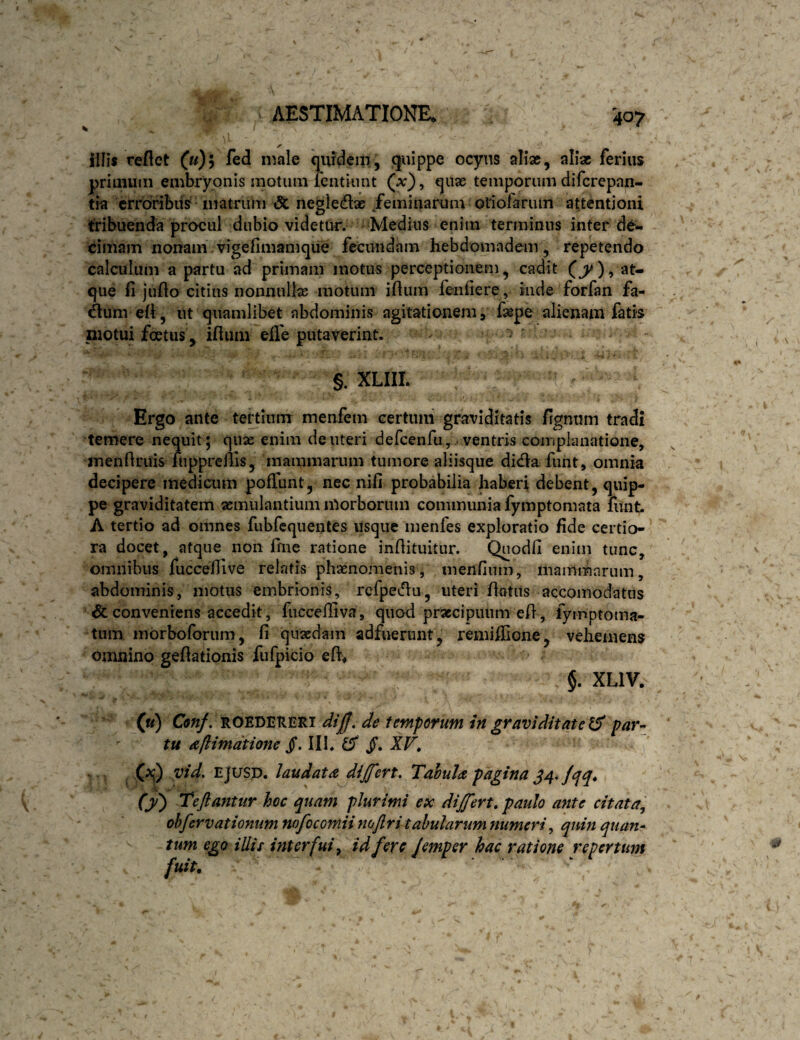 AESTIMATIONE. 407
illis reſtet (u); ſed male quidem, quippe ocyus aliæ, aliæ ſerius
primum embryonis motum ſentiunt (x), quæ temporum diſcrepan-
tia erroribus matrum & neglectæ feminarum otioſarum attentioni
tribuenda procul dubio videtur. Medius enim terminus inter de-
cimam nonam vigeſimamque ſecundam hebdomadem, repetendo
calculum a partu ad primam motus perceptionem, cadit (y), at-
que ſi juſto citius nonnullæ motum iſtum ſenſiere, inde forſan fa-
ctum eſt, ut quamlibet abdominis agitationem, ſæpe alienam ſatis
motui fœtus, iſtum eſſe putaverint.
§. XLIII.
Ergo ante tertium menſem certum graviditatis ſignum tradi
temere nequit; quæ enim de uteri deſcenſu, ventris complanatione,
menſtruis ſuppreſſis, mammarum tumore aliisque dicta ſunt, omnia
decipere medicum poſſunt, nec niſi probabilia haberi debent, quip-
pe graviditatem æmulantium morborum communia ſymptomata ſunt.
A tertio ad omnes ſubſequentes usque menſes exploratio fide certio-
ra docet, atque non ſine ratione inſtituitur. Quodſi enim tunc,
omnibus ſucceſſive relatis phænomenis, menſium, mammarum,
abdominis, motus embrionis, reſpectu, uteri ſtatus accomodatus
& conveniens accedit, ſucceſſiva, quod præcipuum eſt, ſymptoma-
tum morboſorum, ſi quædam adfuerunt, remiſſione, vehemens
omnino geſtationis ſuſpicio eſt.
§. XLIV.
(u) Conf. ROEDERERI diſſ. de temporum in graviditate & par-
tu æſtimatione §. III. & §. XV.
(x) vid. EJUSD. laudatæ diſſert. Tabulæ pagina 34. ſqq.
(y) Teſtantur hoc quam plurimi ex diſſert. paulo ante citata,
obſervationum noſocomii noſtri tabularum numeri, quin quan-
tum ego illis interfui, id fere ſemper hac ratione repertum
fuit.